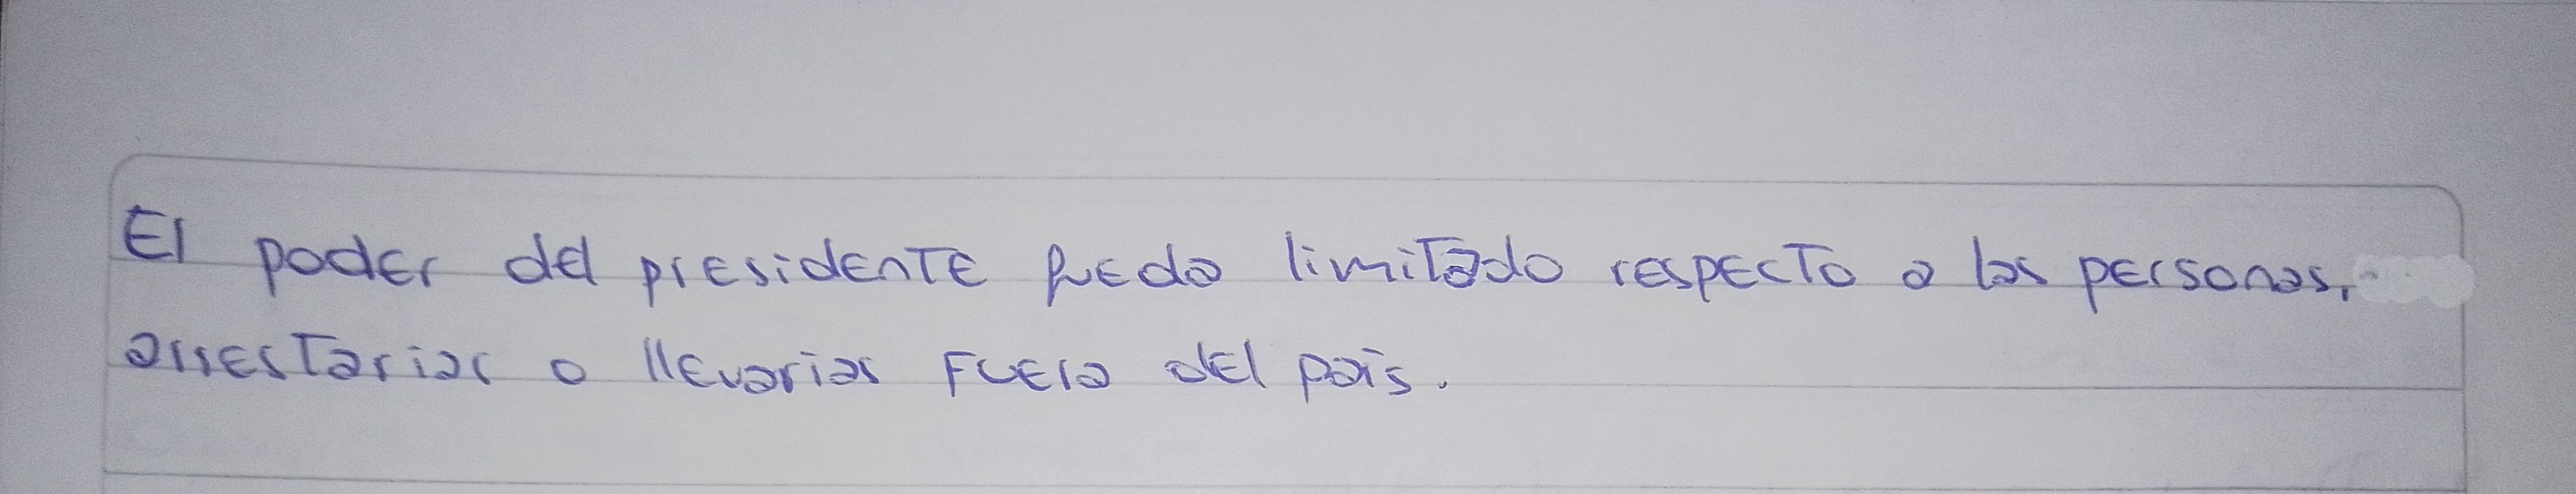 El poder del presidente quedo limitado respecto a las personas,
arrestarlas o llevarlas fuera del país.